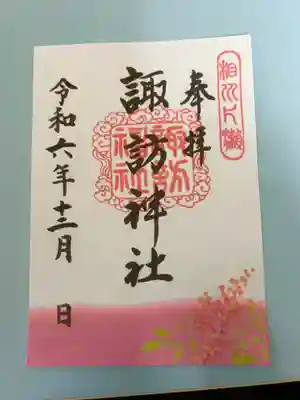 奉拝
諏訪神社
諏訪神社
令和六年十二月 日